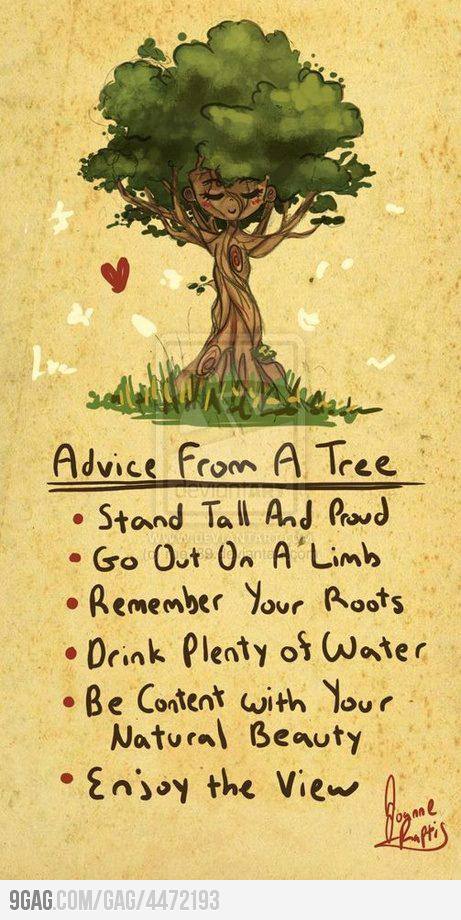 Advice From A Tree
• Stand Tall And Proud
• Go Out On A Limb
• Remember Your Roots
• Drink Plenty of Water
• Be Content with Your
Natural Beauty
• Enjoy the View
Joanne
Raftis
9GAG.COM/GAG/4472193